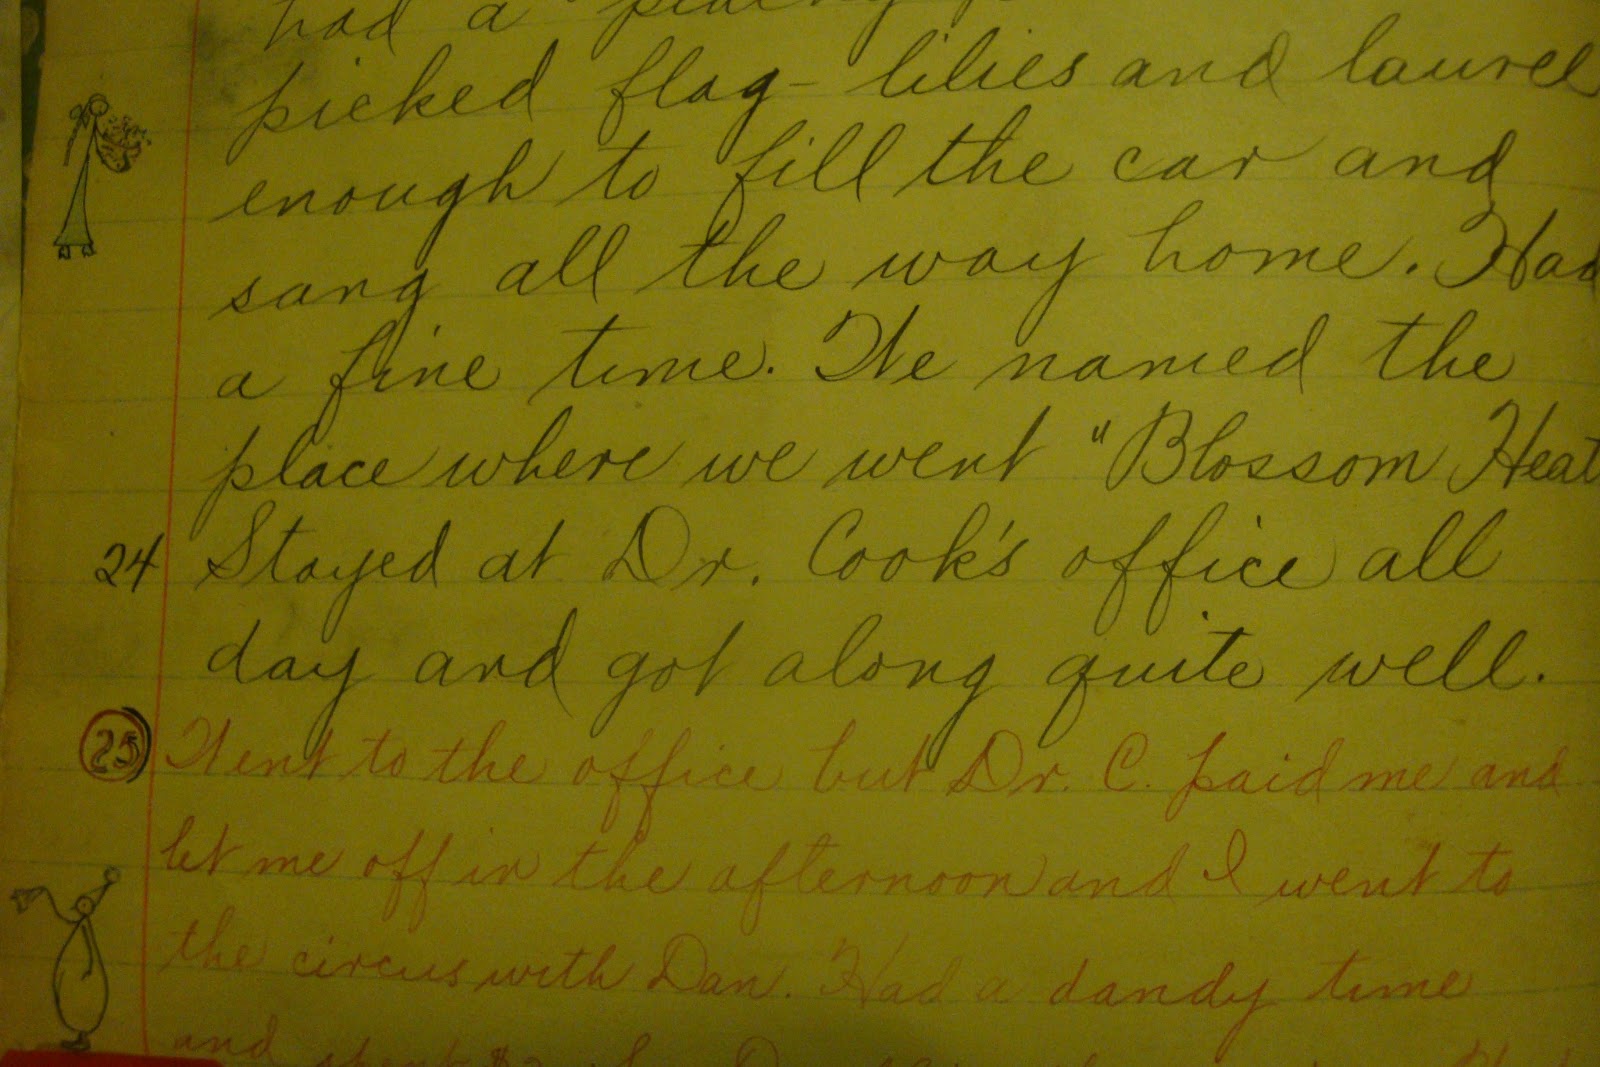 had a
picked flag-lilies and laurel
enough to fill the car and
sang all the way home. Had
a fine time. We named the
place where we went "Blossom Heat
24 Stayed at Dr. Cook's office all
day and got along quite well.
25 Went to the office but Dr. C. paid me and
let me off in the afternoon and I went to
the circus with Dan. Had a dandy time
and spent $2